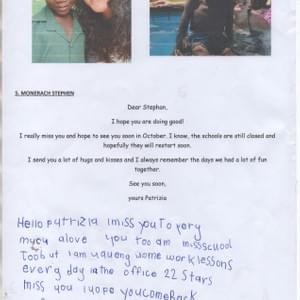 5. MONERACH STEPHEN
Dear Stephan,
I hope you are doing good!
I really miss you and hope to see you soon in October. I know, the schools are still closed and
hopefully they will restart soon.
I send you a lot of hugs and kisses and I always remember the days we had a lot of fun
together.
See you soon,
yours Patrizia
Hello Patrizia I miss you
you too am miss school
I am
work lessons
every day in the office 22 Stars
miss you I hope you come back